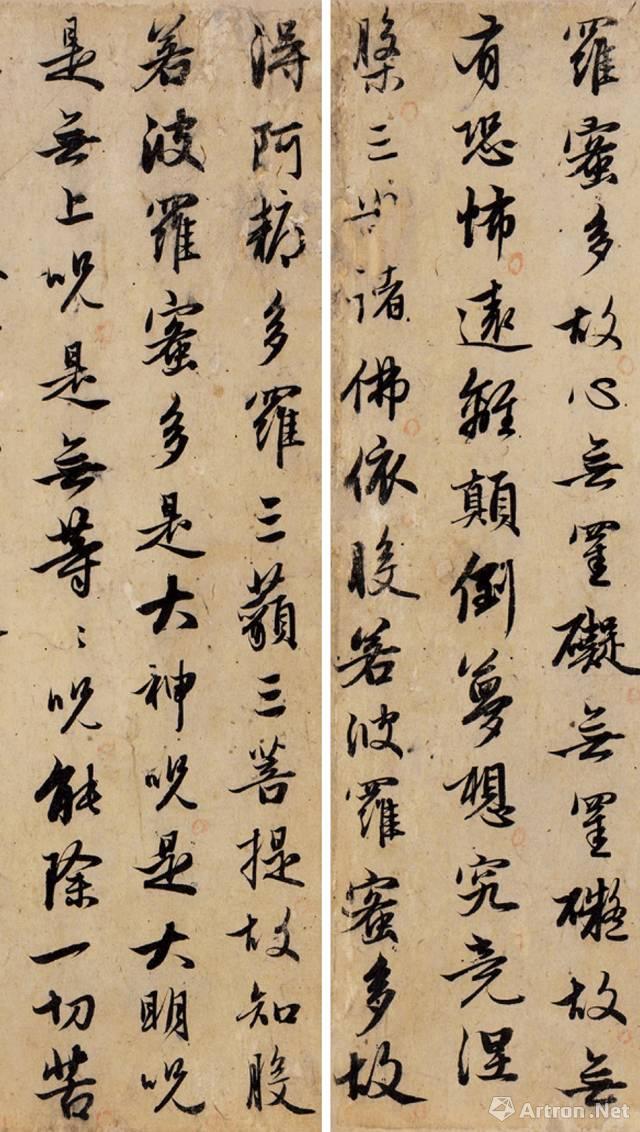 羅蜜多故心無罣礙無罣礙故無
有恐怖遠離顛倒夢想究竟涅
槃三世諸佛依般若波羅蜜多故
得阿耨多羅三藐三菩提故知般
若波羅蜜多是大神咒是大明咒
是無上咒是無等〻咒能除一切苦
Artron.Net